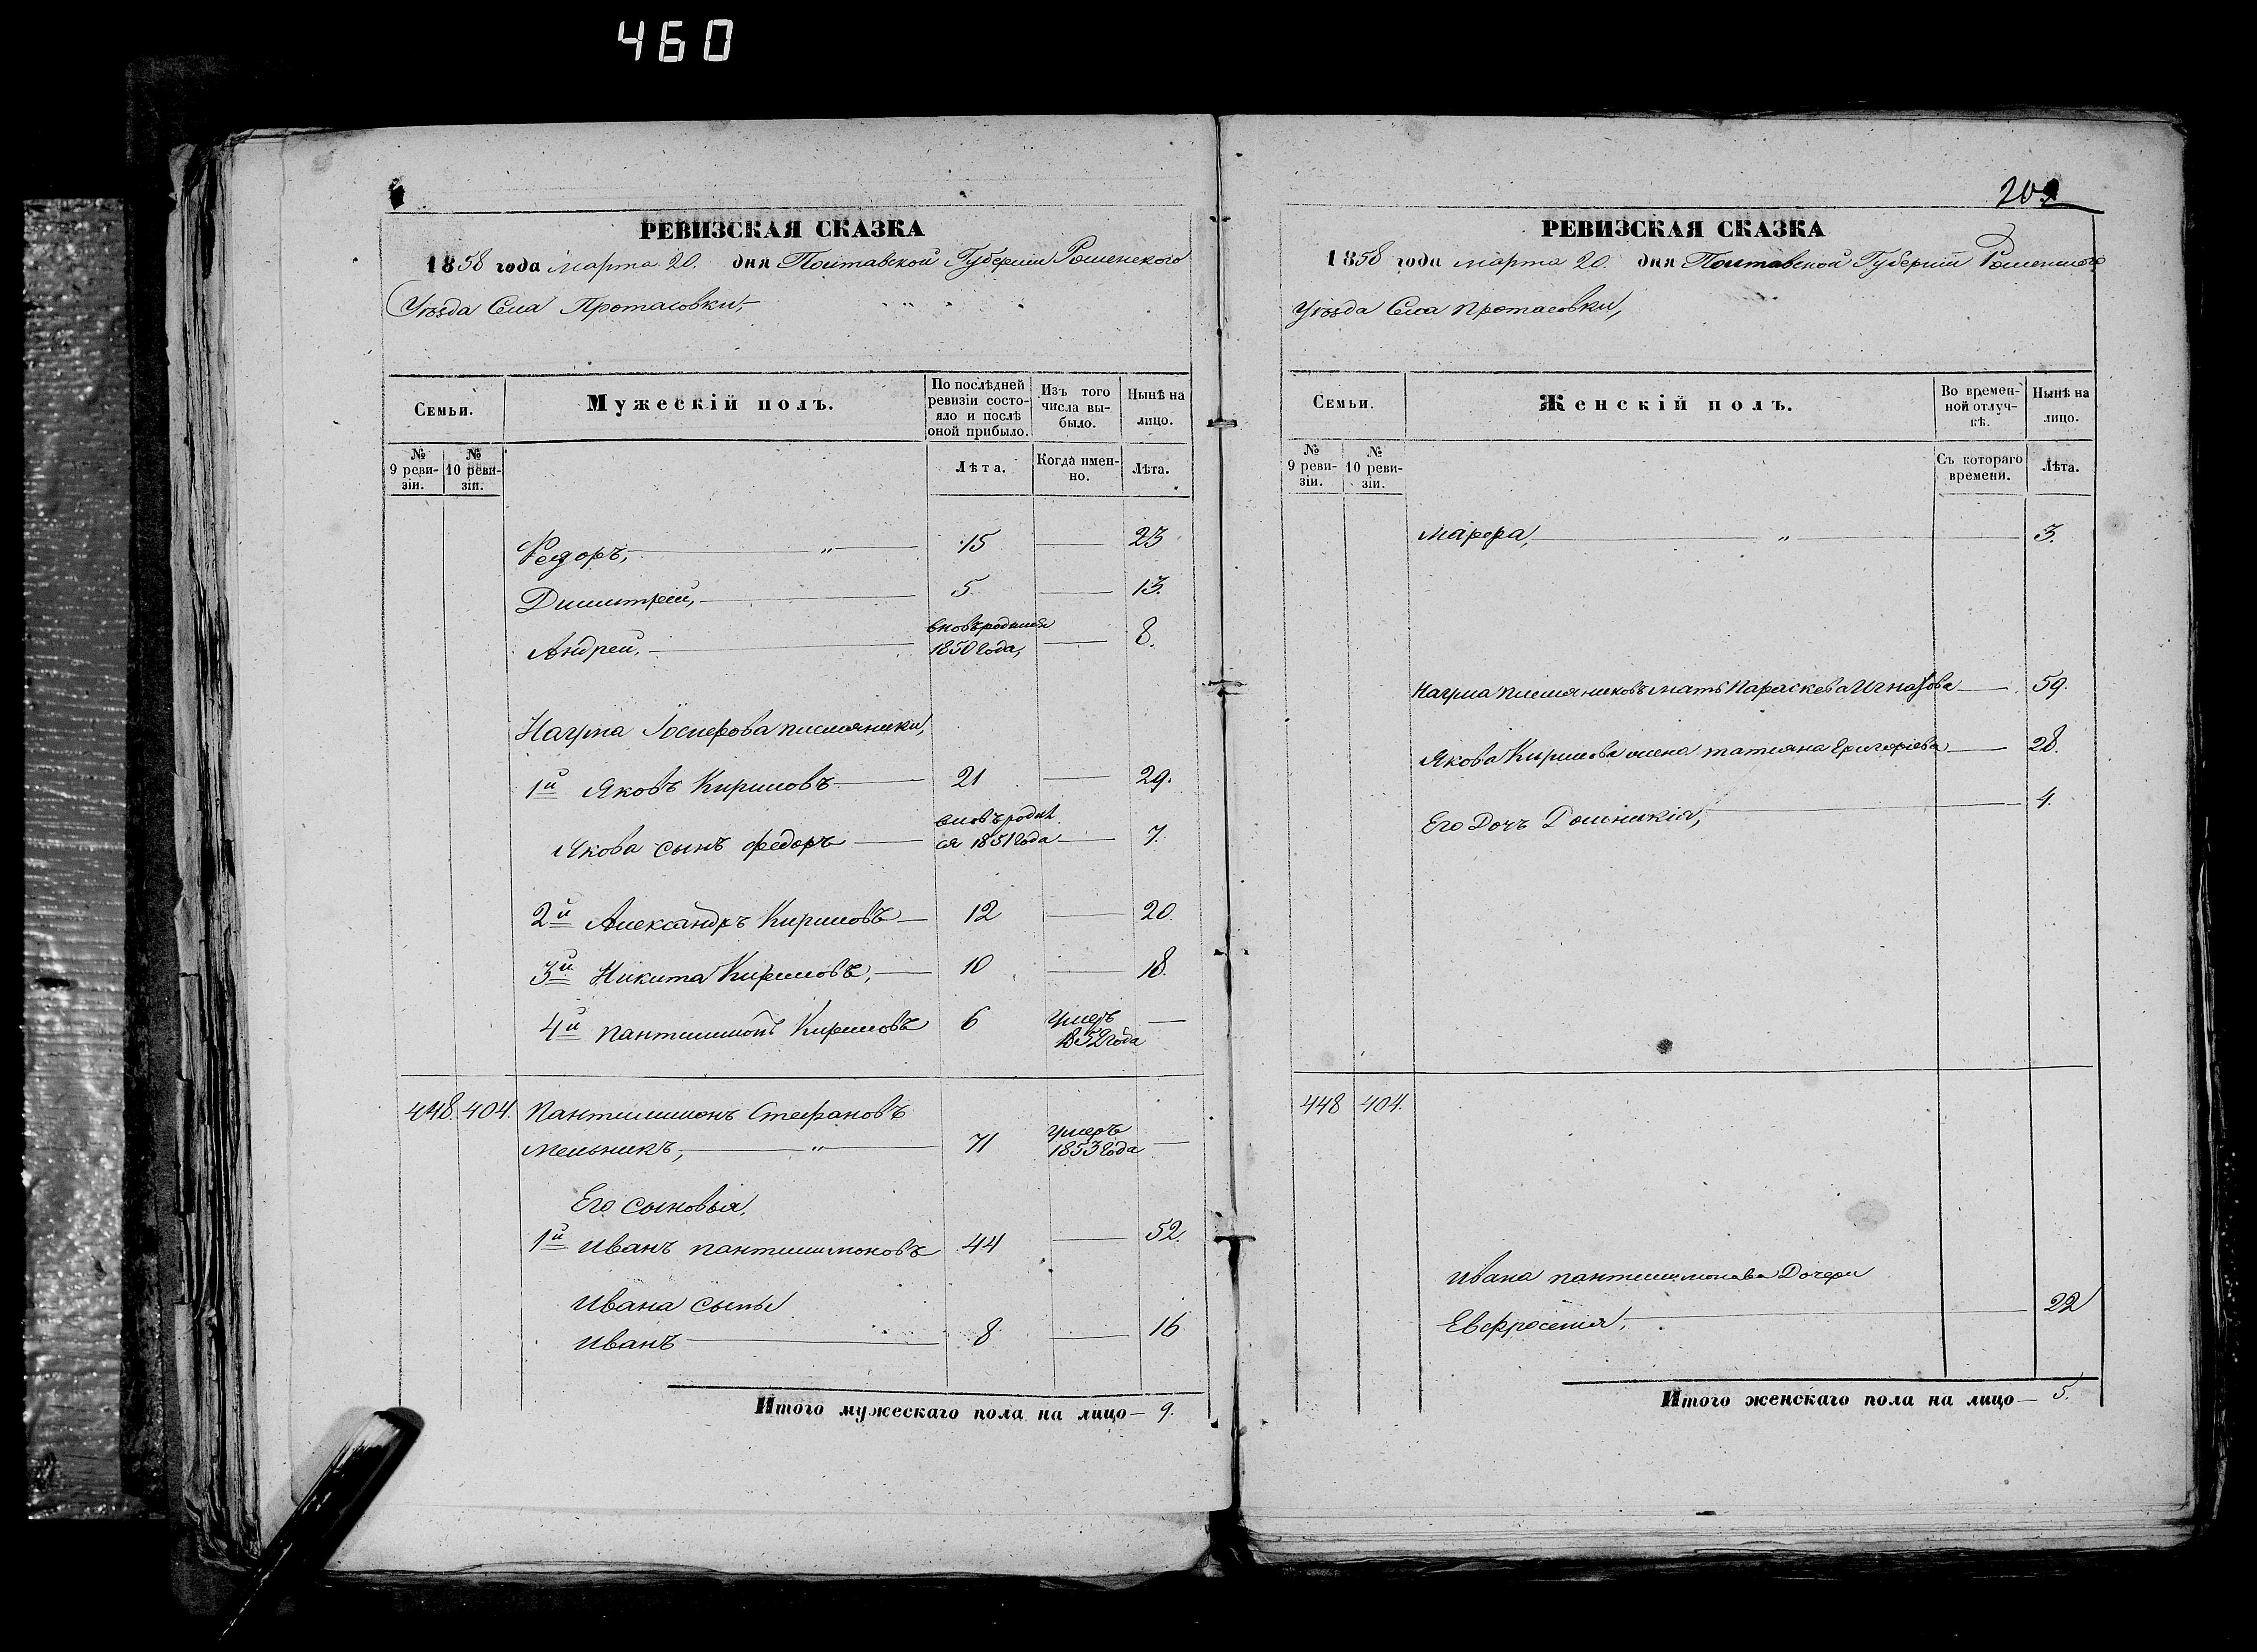 460
РЕВИЗСКАЯ СКАЗКА
1858 года марта 20. дня Полтавской Губерніи Роменского
Уѣзда Села Протасовки,
Семьи.
Мужескій полъ.
По послѣдней ревизіи состояло и послѣ оной прибыло.
Изъ того числа выбыло.
Нынѣ на лицо.
№ 9 ревизіи.
№ 10 ревизіи.
Лѣта.
Когда именно.
Лѣта.
Федоръ, — " — 15 — 23
Димитрей, — 5 — 13.
Андрей, — вновъродился 1850 года, — 8.
Наума Іосифова племяники,
1й Яковъ Кириловъ — 21 — 29.
Якова сынъ федоръ — вновъродился 1851 года — 7.
2й Александръ Кириловъ — 12 — 20.
3й Никита Кириловъ, — 10 — 18.
4й Пантилимонъ Кириловъ 6 умеръ 1852 года —
448. 404. Пантилимонъ Стефановъ
Мельникъ, — " — 71 умеръ 1853 года —
Его сыновья.
1й Иванъ пантилимоновъ 44 — 52.
Ивана сыны
Иванъ — 8 — 16
Итого мужескаго пола на лицо — 9.
202
РЕВИЗСКАЯ СКАЗКА
1858 года марта 20. дня Полтавской Губерніи Роменского
Уѣзда Села Протасовки,
Семьи.
Женскій полъ.
Во временной отлучкѣ.
Нынѣ на лицо.
№ 9 ревизіи.
№ 10 ревизіи.
Съ котораго времени.
Лѣта.
Марфа, — " — 3.
Наума племяниковъ мать Параскева Игнатова — 59.
Якова Кирилова жена татияна Григориева — 28.
Его Дочъ Домникія, — 4.
448 404.
Ивана пантилимонава Дочери
Евфросения, — 22
Итого женскаго пола на лицо — 5.